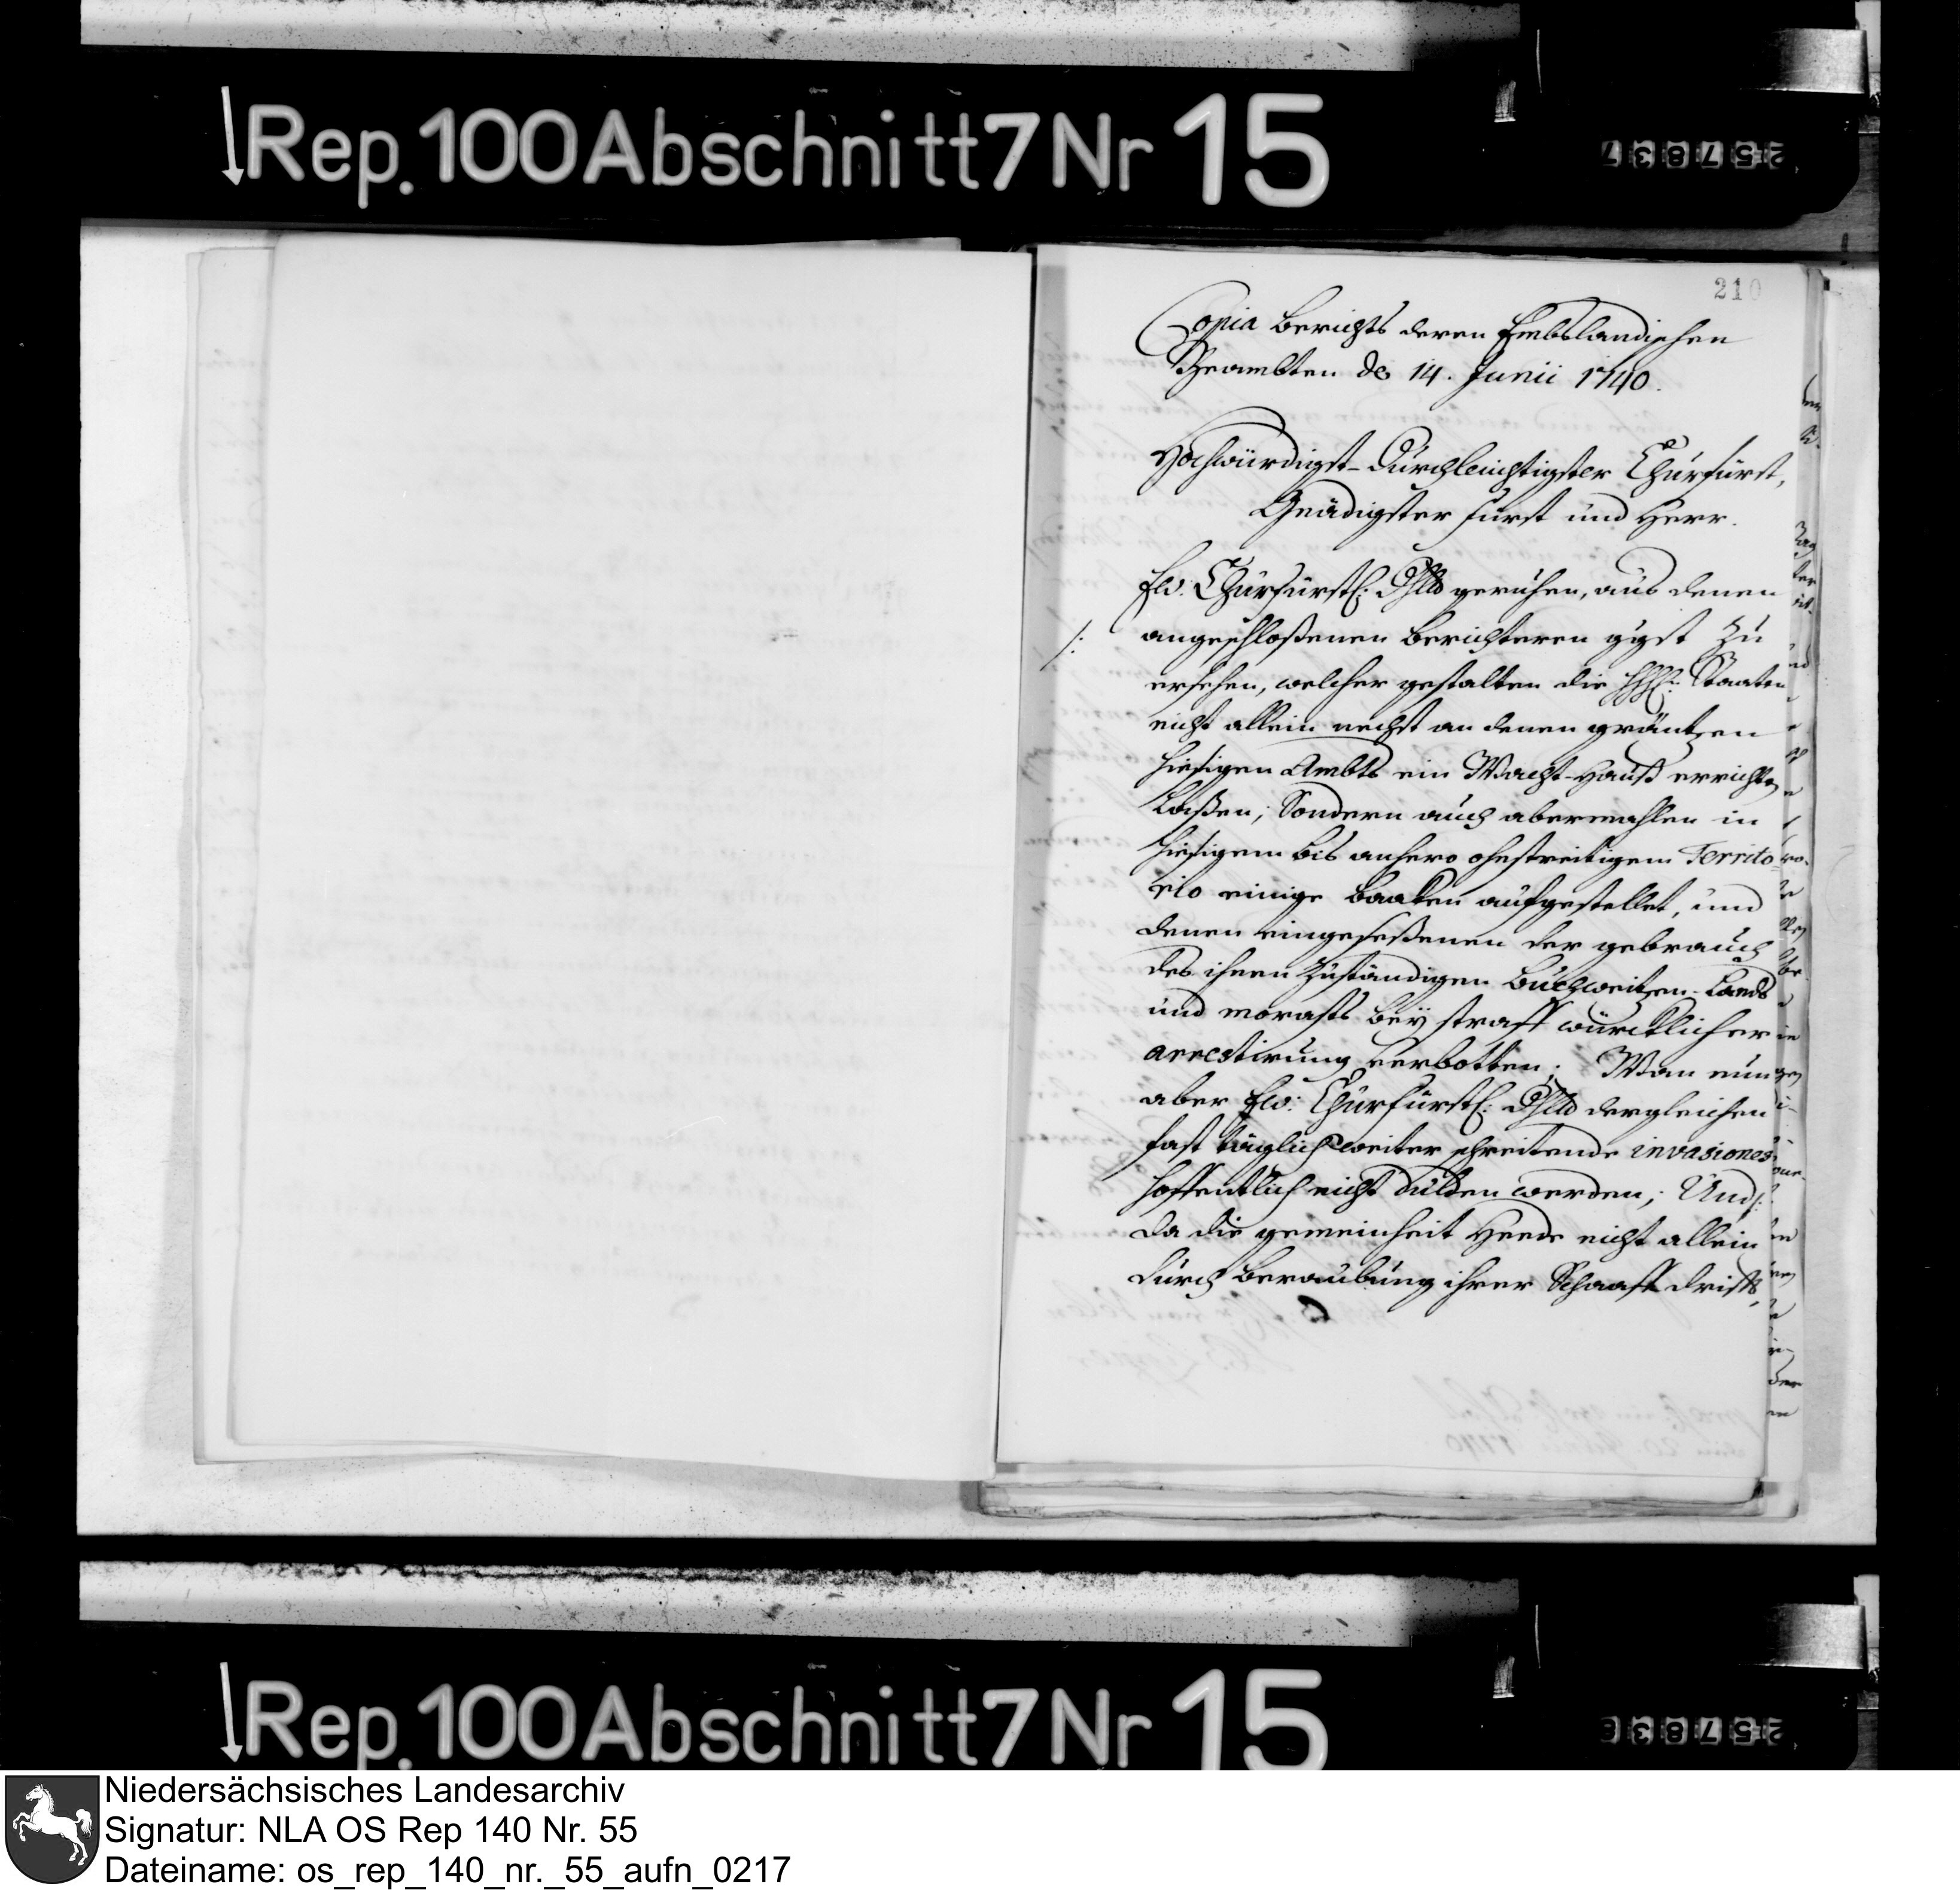 Rep. 100 Abschnitt 7 Nr 15
257837
210
Copia Berichts deren Embslandischen
Beambten de 14. Junii 1740.
Hochwürdigst-Dürchleüchtigster Chürfürst,
Gnädigster Fürst und Herr.
Ew: Chürfürstl: Dhlt geruhen, aus denen
/: angeschloßenen Berichteren ggst zu
ersehen, welcher gestalten die HHH: Staaten
nicht allein nechst an denen gräntzen
hiesigen Ambts ein Wacht-Hauß errichten
Laßen, Sondern auch abermahlen in
hiesigem bis anhero ohnstreitigem Territo
rio einige Baaken aufgestellet, und
denen eingeseßenen der gebrauch
des ihnen Zuständigen Buchweitzen-Lands
und morasts beÿ straff würcklicher
arrestirung verbotten; Wan nun
aber Ew: Chürfürstl: Dhlt dergleichen
fast täglich weiter schreitende invasiones
hoffentlich nicht dulden werden; Und
da die gemeinheit Heede nicht allein
durch beraubung ihrer Schaaff drifft,
Rep. 100 Abschnitt 7 Nr 15
257838
Niedersächsisches Landesarchiv
Signatur: NLA OS Rep 140 Nr. 55
Dateiname: os_rep_140_nr._55_aufn_0217